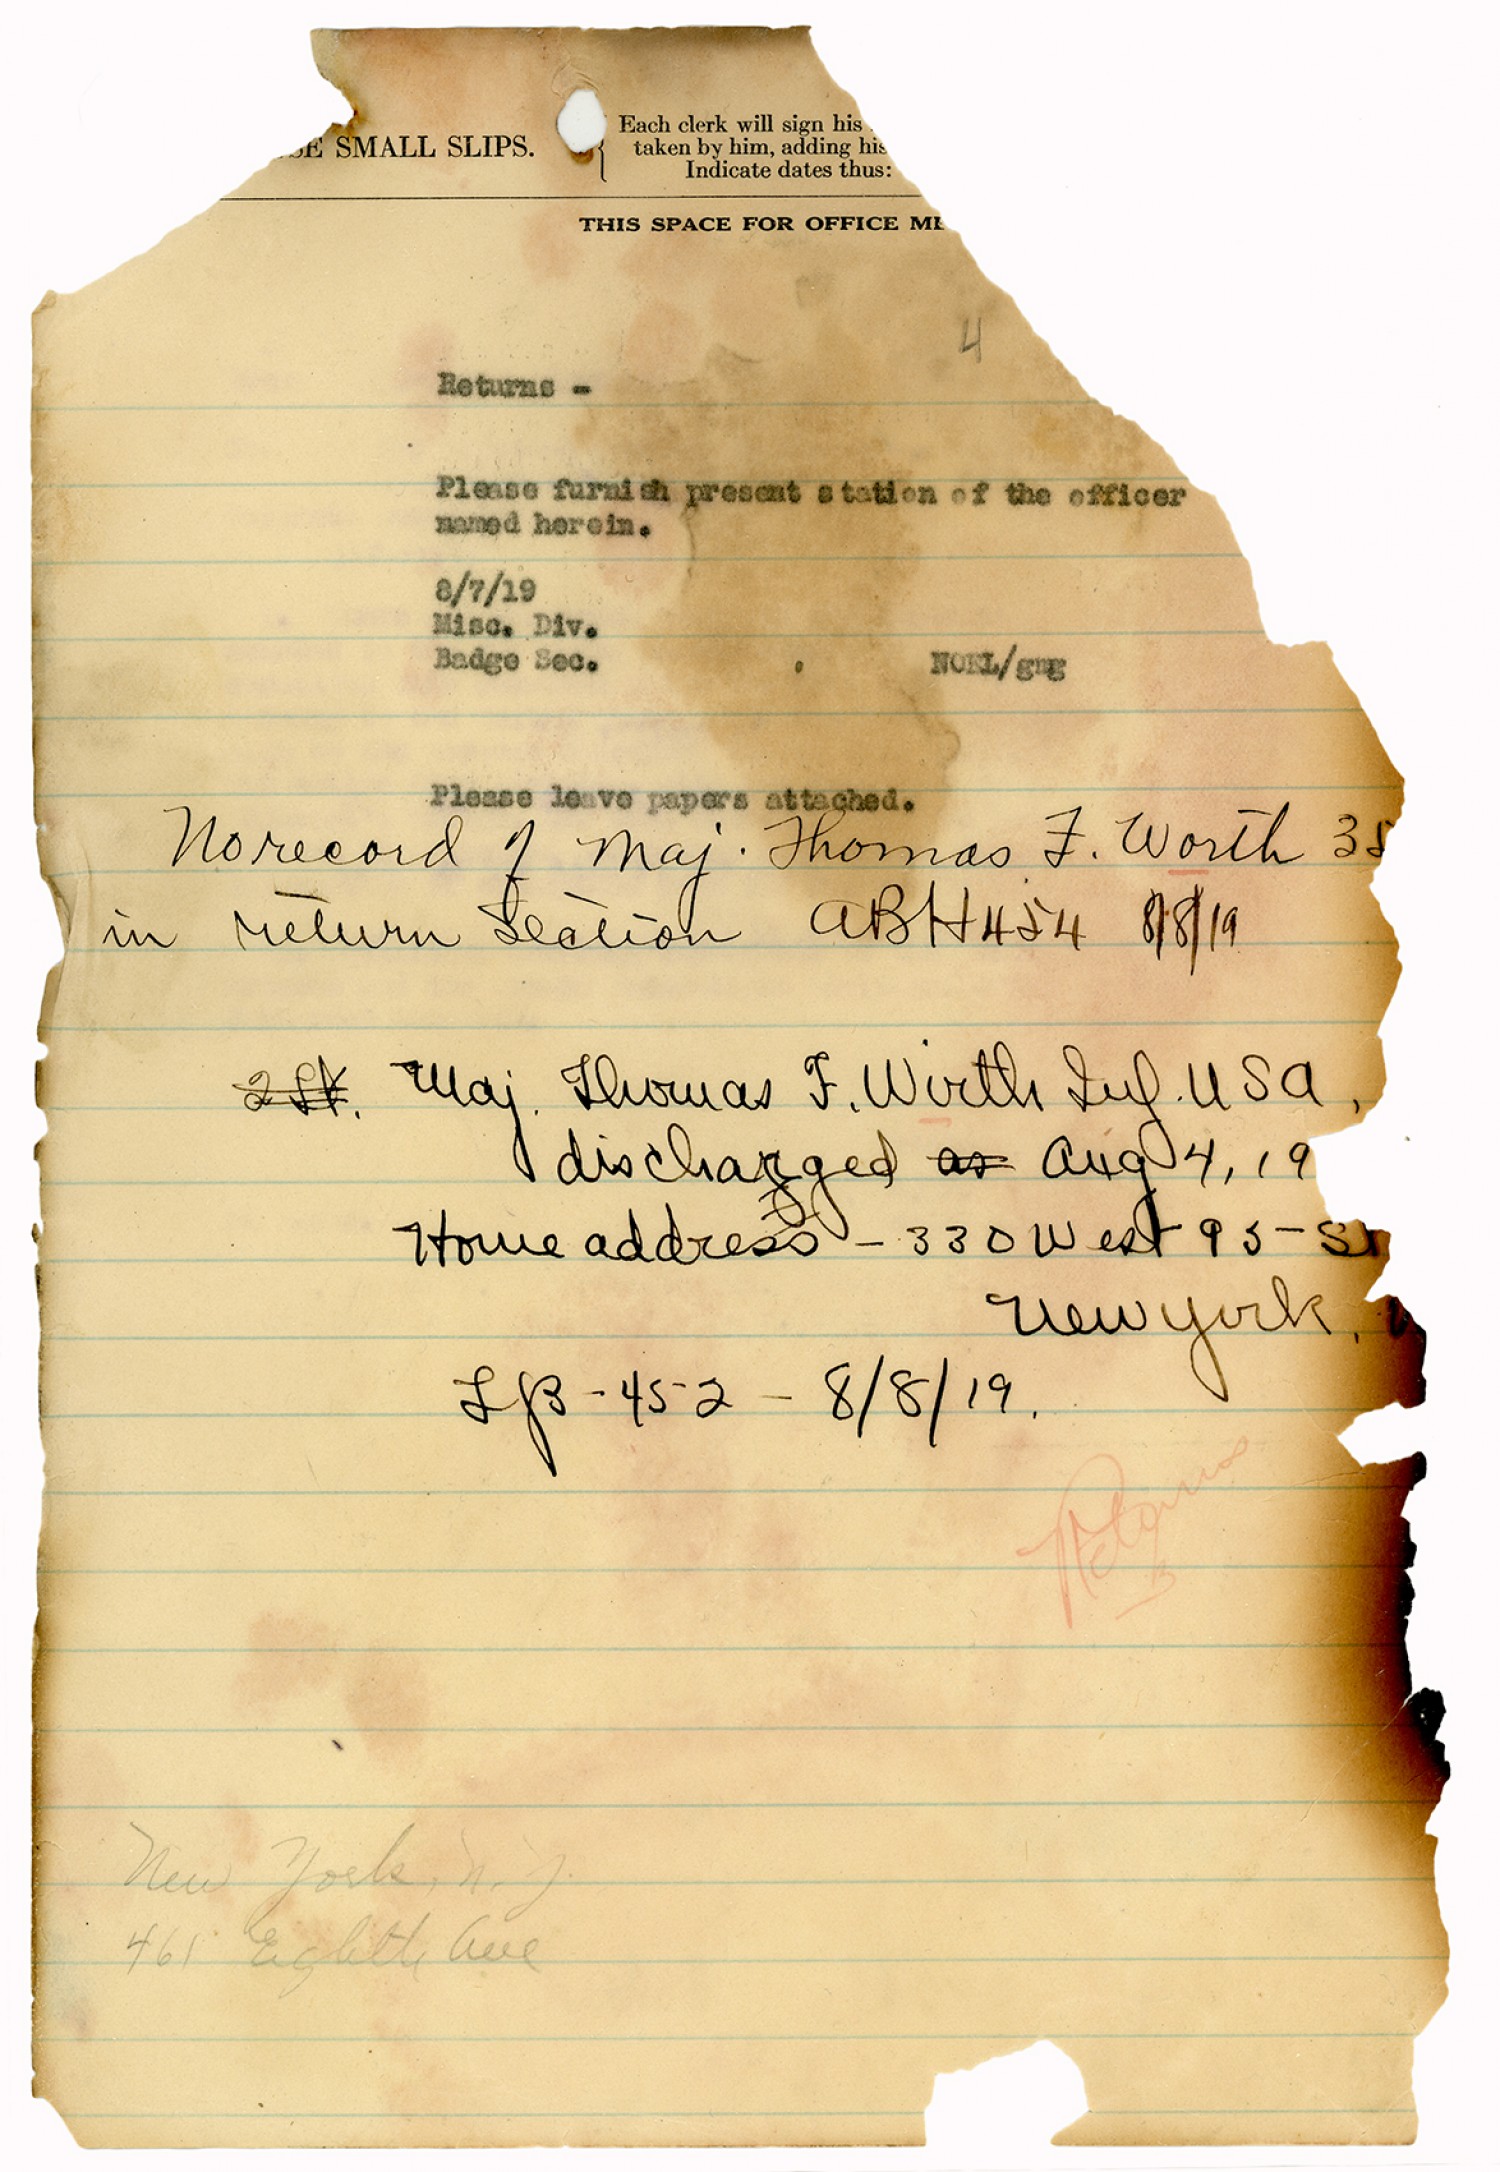 SE SMALL SLIPS.
Each clerk will sign his
taken by him, adding his
Indicate dates thus:
THIS SPACE FOR OFFICE ME
4
Returns -
Please furnish present station of the officer
named herein.
8/7/19
Misc. Div.
Badge Sec. NOEL/gmg
Please leave papers attached.
No record of Maj. Thomas F. Worth 35
in return Section ABH454 8/8/19
2 Lt. Maj. Thomas F. Wirth Inf. USA,
discharged as Aug 4, 19
Home address - 330 West 95-St
New York,
LJB-452 - 8/8/19.
New York, N.Y.
461 Eighth Ave